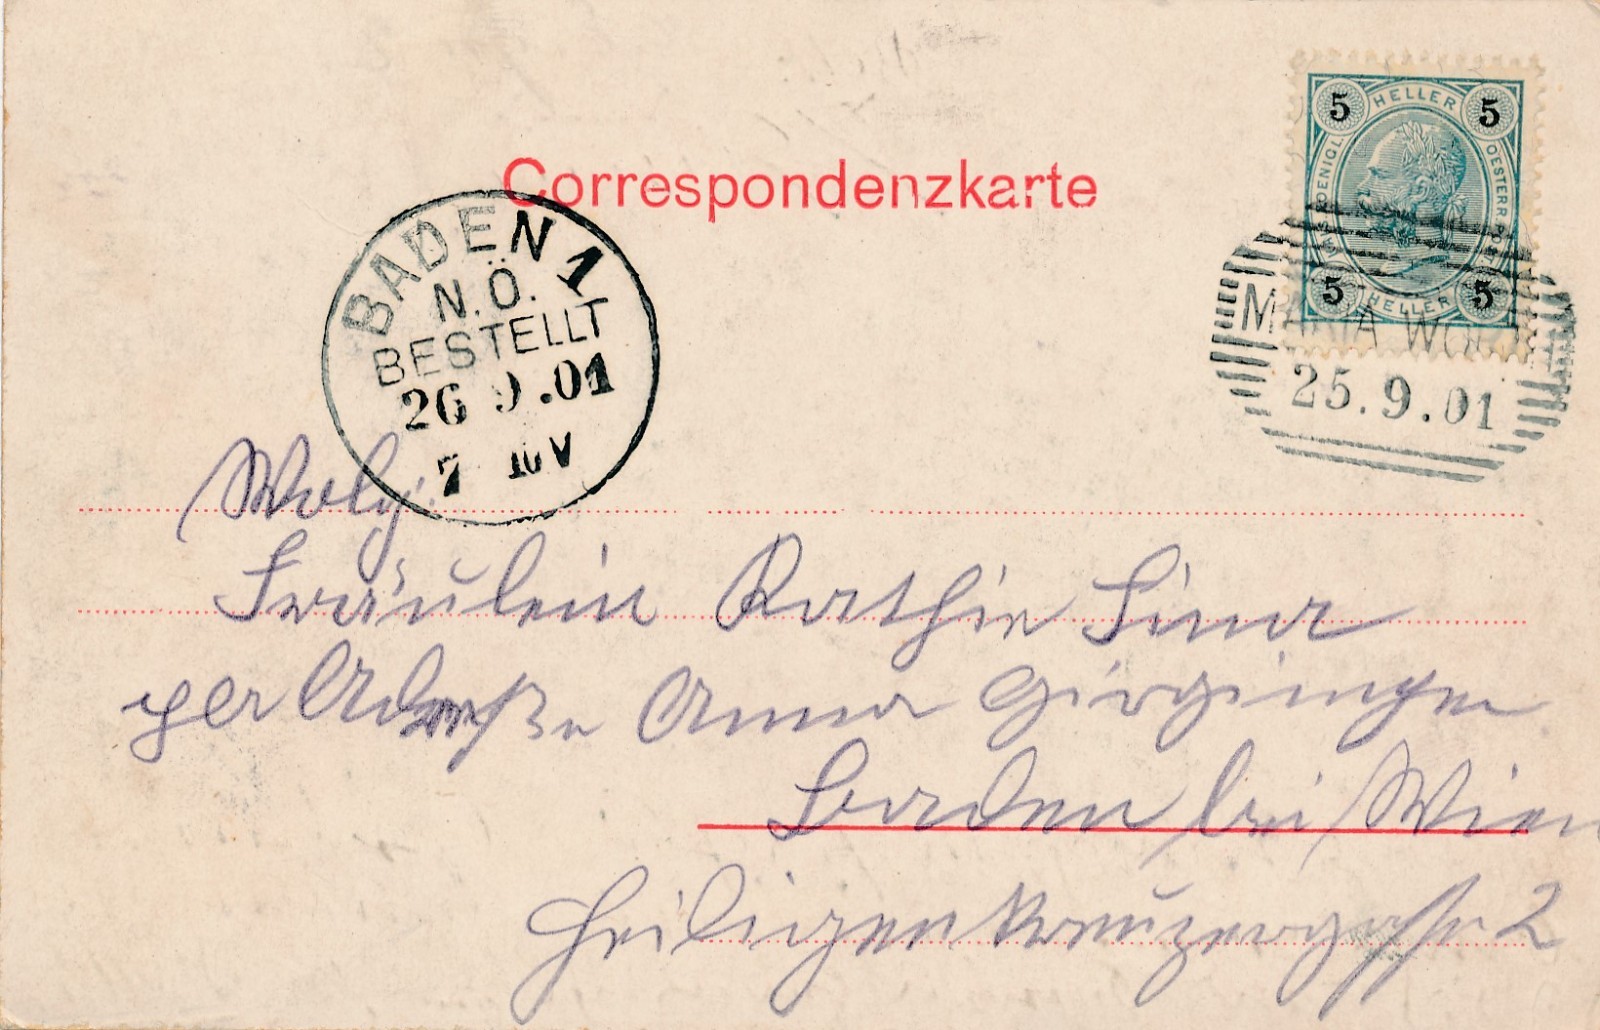 Correspondenzkarte
5 HELLER 5
KAIS. KOENIGL. OESTERR. POST
5 HELLER 5
MARIA WÖRTH
25.9.01
BADEN 1
N.Ö.
BESTELLT
26 9.01
7 10 V
Wolg:
Fräulein Kathie Sima
per Adreße Anna
Baden bei Wien
Heiligenkreuzergasse 2